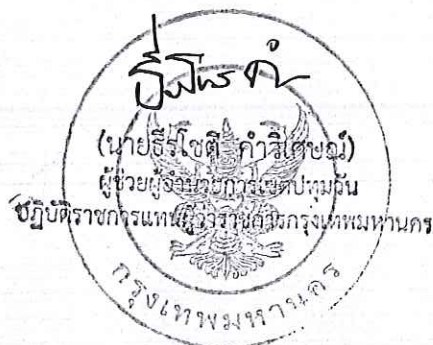 (นายธีรโชติ คำวิเศษณ์)
ผู้ช่วยผู้อำนวยการเขตปทุมวัน
ปฏิบัติราชการแทนผู้ว่าราชการกรุงเทพมหานคร
กรุงเทพมหานคร